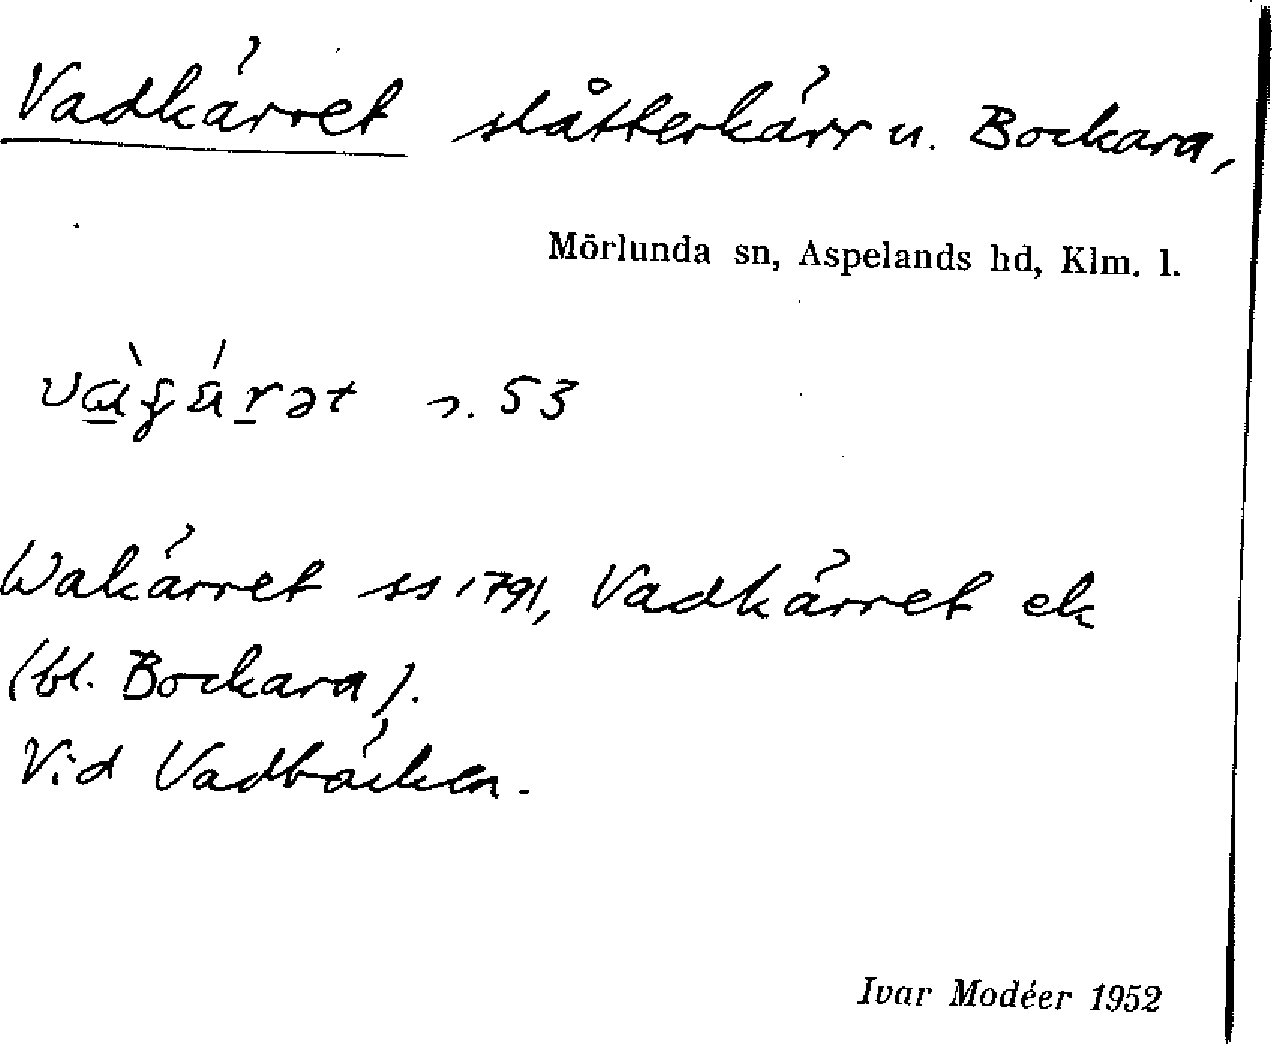 Vadkärret slåtterkärr u. Bockara,
Mörlunda sn, Aspelands hd, Klm. l.
s. 53
Wakärret ss 1791, Vadkärret ek
(bl. Bockara).
Vid Vadbäcken.
Ivar Modéer 1952